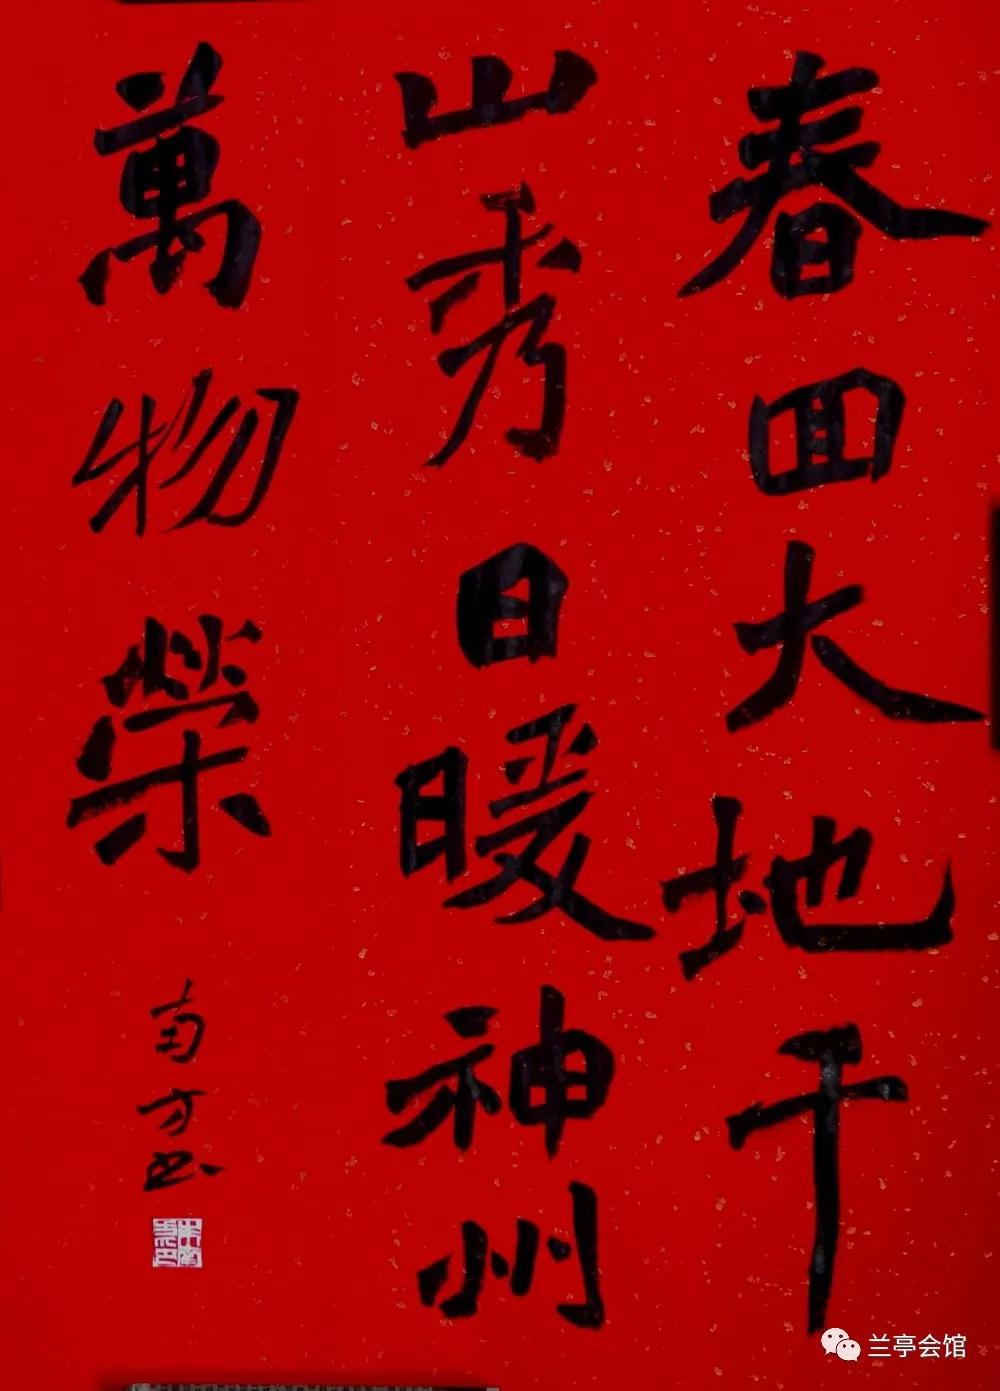 春回大地千
山秀日暖神州
萬物榮
南方书
兰亭会馆